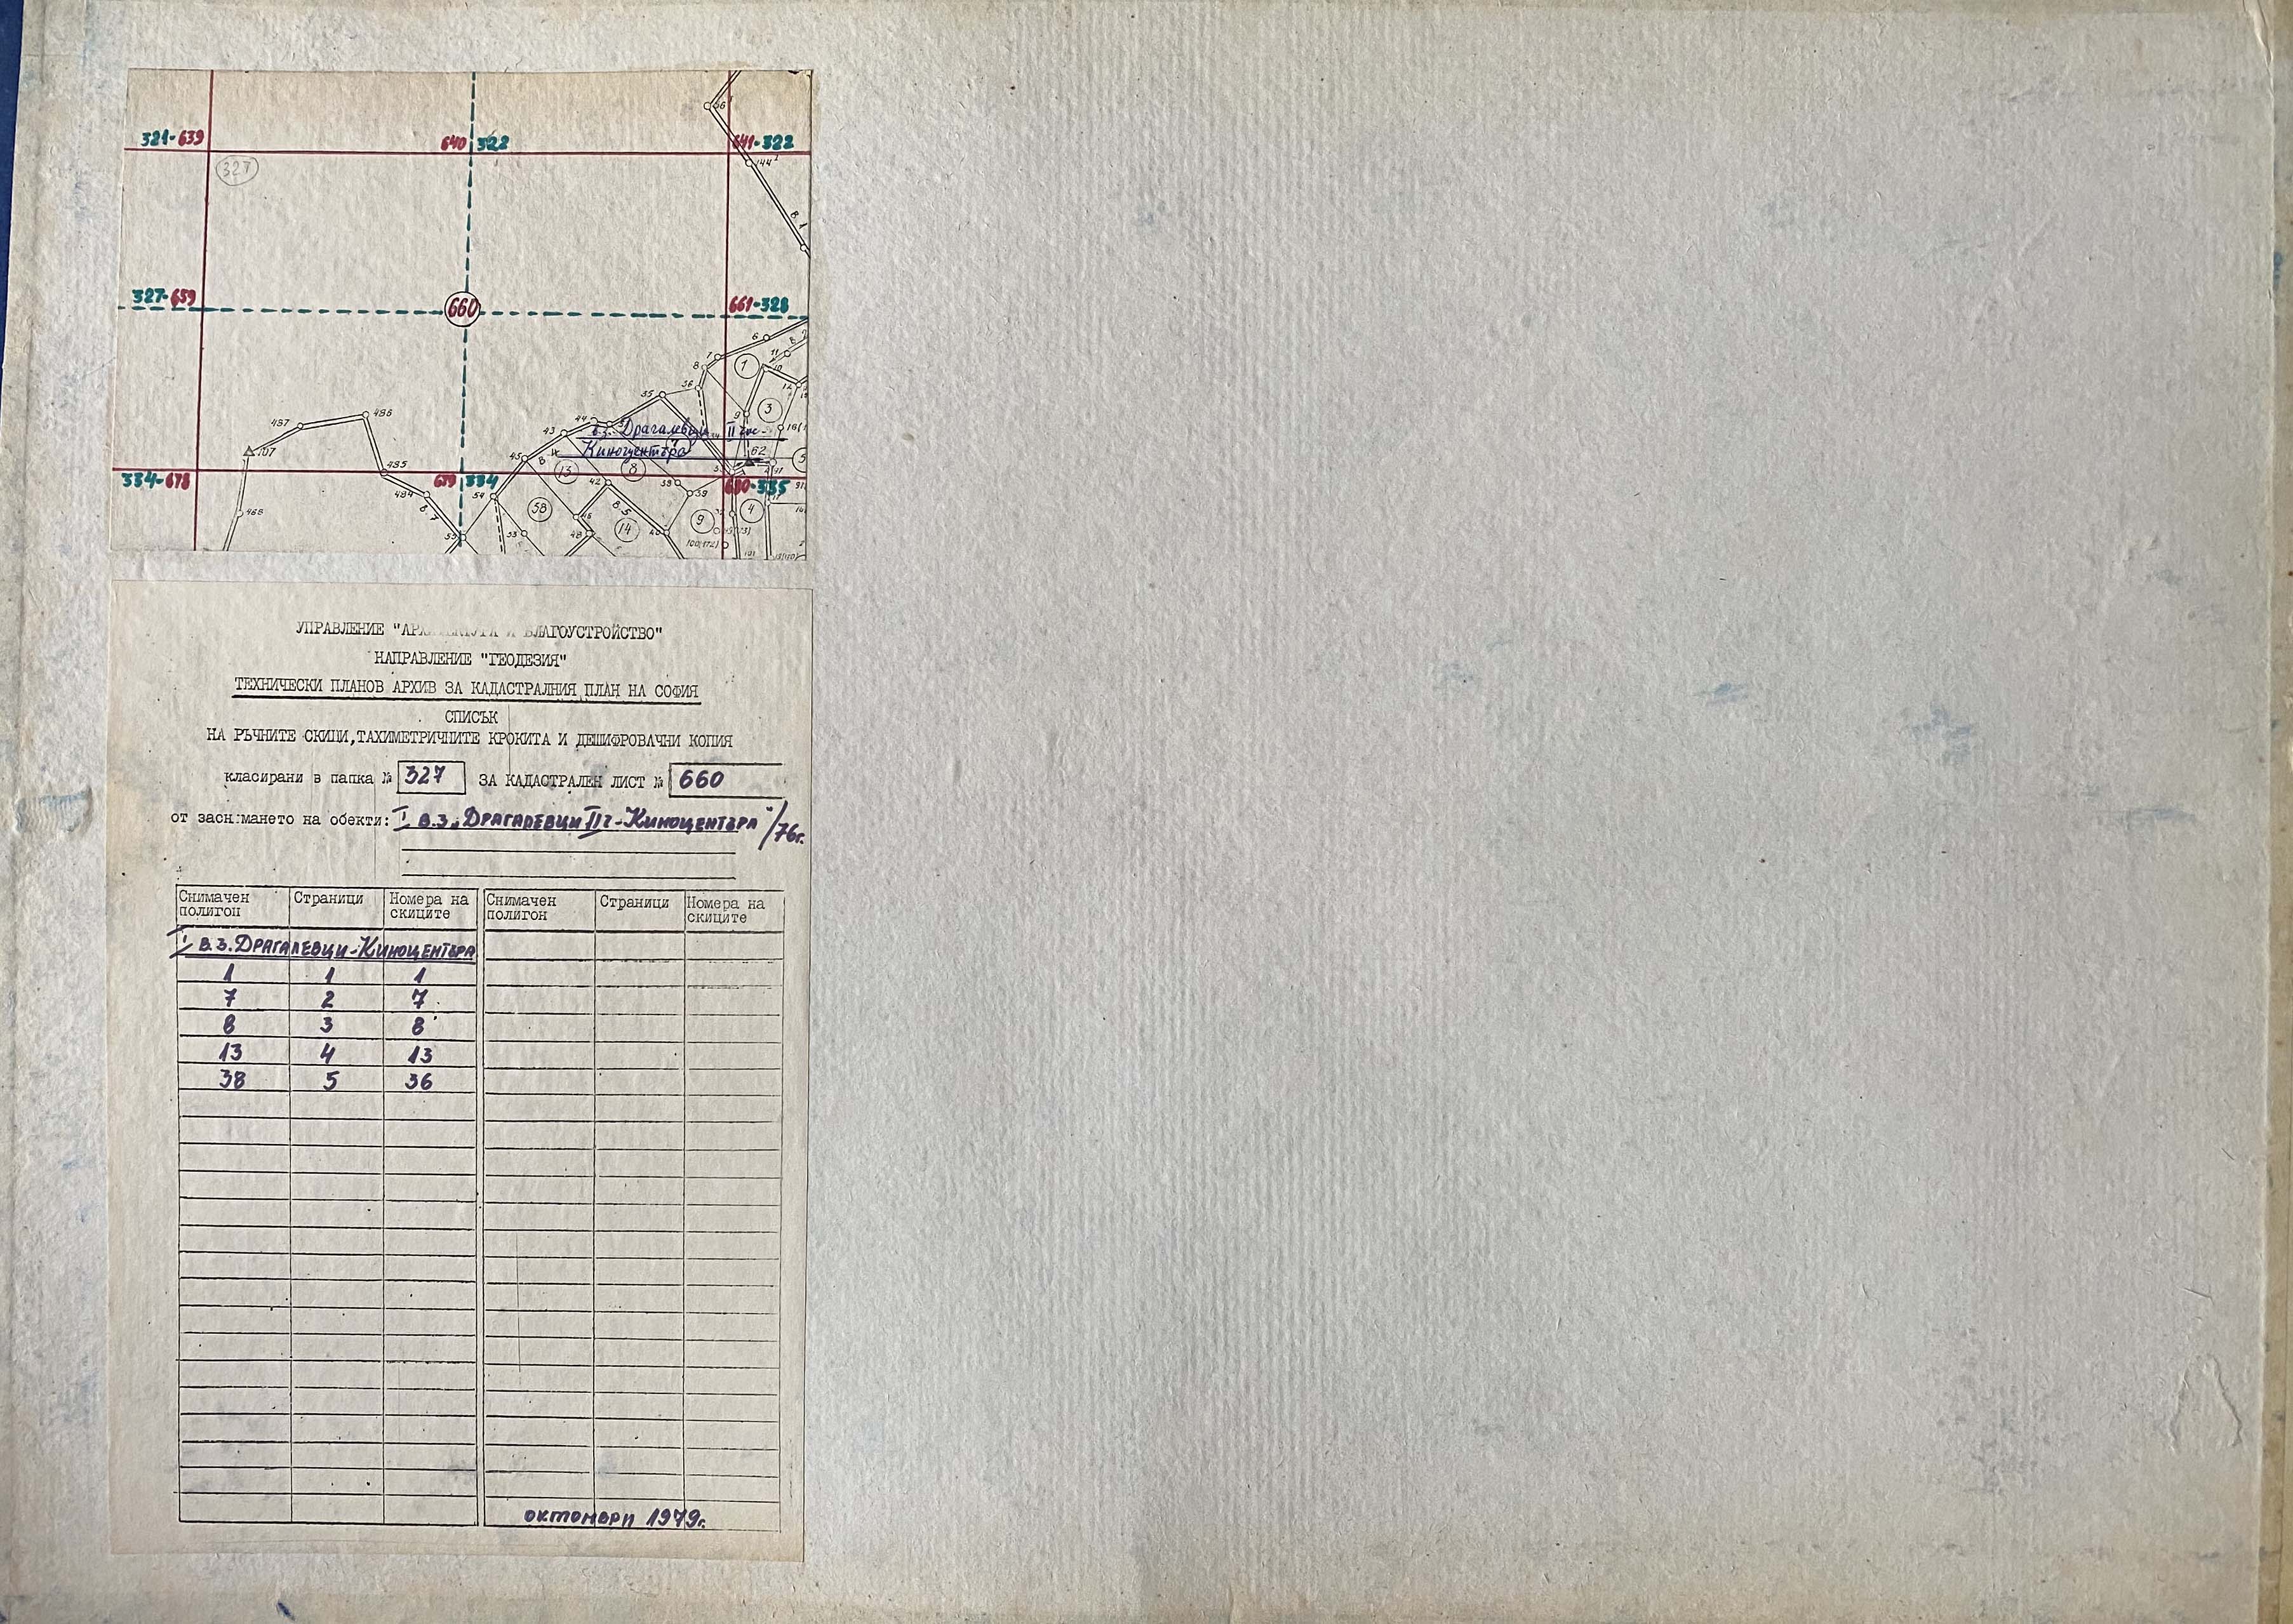 56
321-639
640 322
641-322
327
144
В.1
327-659
660
661-328
6
7
11
8
1
10
36
35
12
3
9
496
497
44
43
в.з. Драгалевци II час-
16
Киноцентъра
62
107
45
13
8
495
334-678
679 334
680-335
494
54
42
38
39
В.7
58
В.5
9
4
468
46
14
55
53
48
40
100(172)
101
УПРАВЛЕНИЕ "АРХИТЕКТУРА И БЛАГОУСТРОЙСТВО"
НАПРАВЛЕНИЕ "ГЕОДЕЗИЯ"
ТЕХНИЧЕСКИ ПЛАНОВ АРХИВ ЗА КАДАСТРАЛНИЯ ПЛАН НА СОФИЯ
СПИСЪК
НА РЪЧНИТЕ СКИЦИ, ТАХИМЕТРИЧНИТЕ КРОКИТА И ДЕШИФРОВАЧНИ КОПИЯ
класирани в папка № 327 ЗА КАДАСТРАЛЕН ЛИСТ № 660
от заснимането на обекти: I в.з. „Драгалевци II ч-Киноцентъра"/76г.
Снимачен полигон Страници Номера на скиците Снимачен полигон Страници Номера на скиците
I в.з. Драгалевци-Киноцентъра
1 1 1
7 2 7
8 3 8
13 4 13
38 5 36
октомври 1979г.